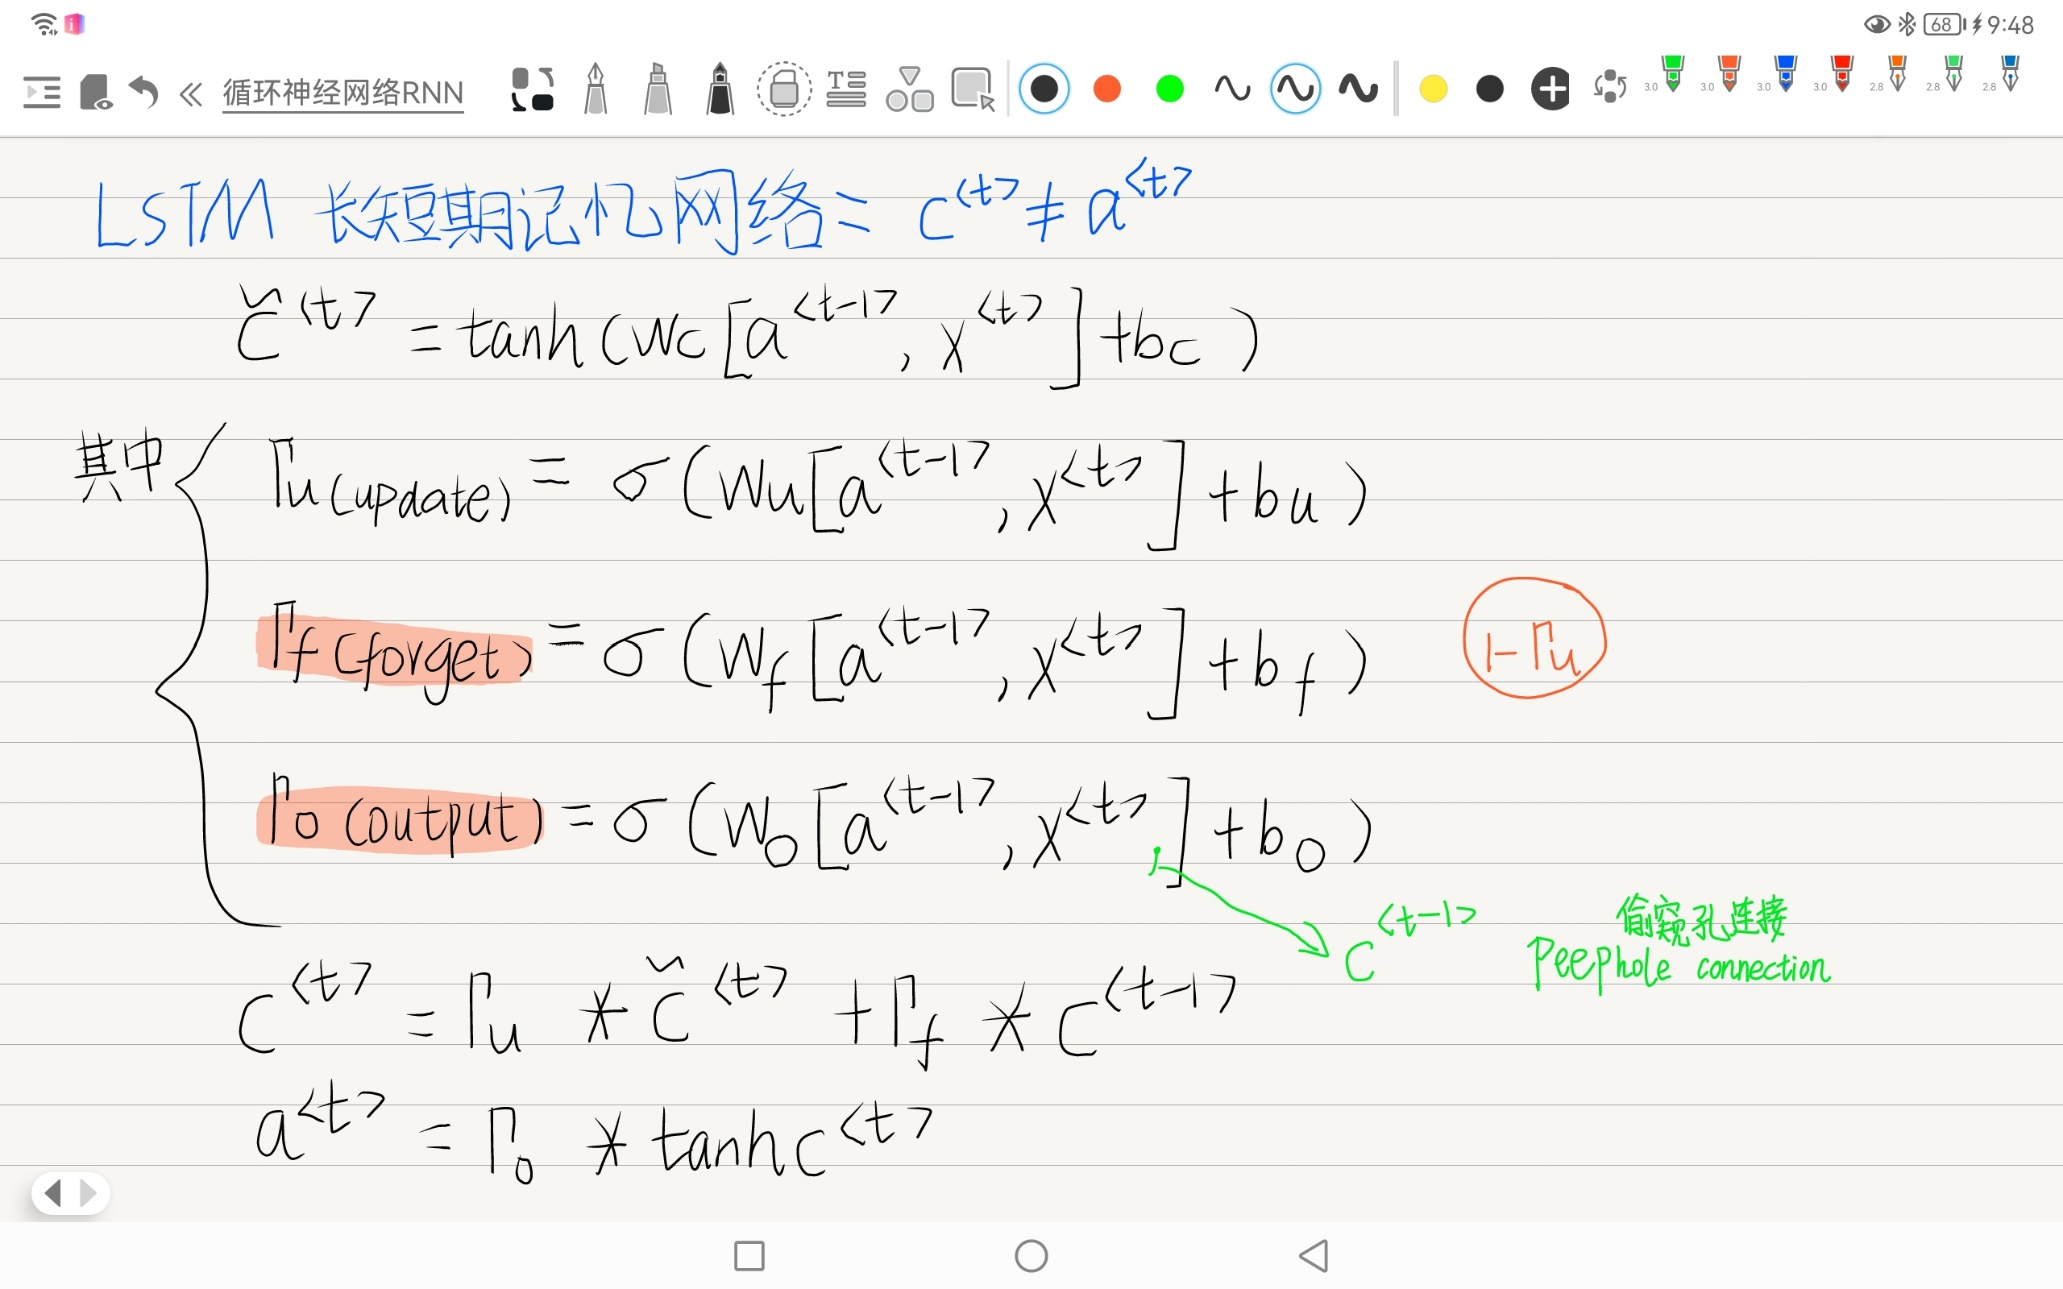 68 9:48
循环神经网络RNN
3.0 3.0 3.0 3.0 2.8 2.8 2.8
LSTM 长短期记忆网络: c<t> ≠ a<t>
c̃<t> = tanh(Wc[a<t-1>, x<t>]+bc)
其中
Γu(update) = σ(Wu[a<t-1>, x<t>]+bu)
Γf(forget) = σ(Wf[a<t-1>, x<t>]+bf) 1-Γu
Γo(output) = σ(Wo[a<t-1>, x<t>,]+bo)
c<t-1> 偷窥孔连接
Peephole connection
c<t> = Γu * c̃<t> + Γf * c<t-1>
a<t> = Γo * tanh c<t>